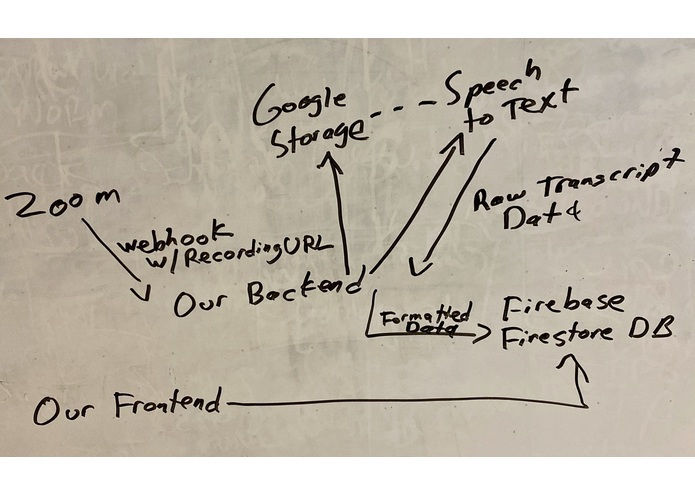 Google
Storage
Speech
to Text
Zoom
webhook
w/Recording URL
Raw Transcript
Data
Our Backend
Formatted
Data
Firebase
Firestore DB
Our Frontend